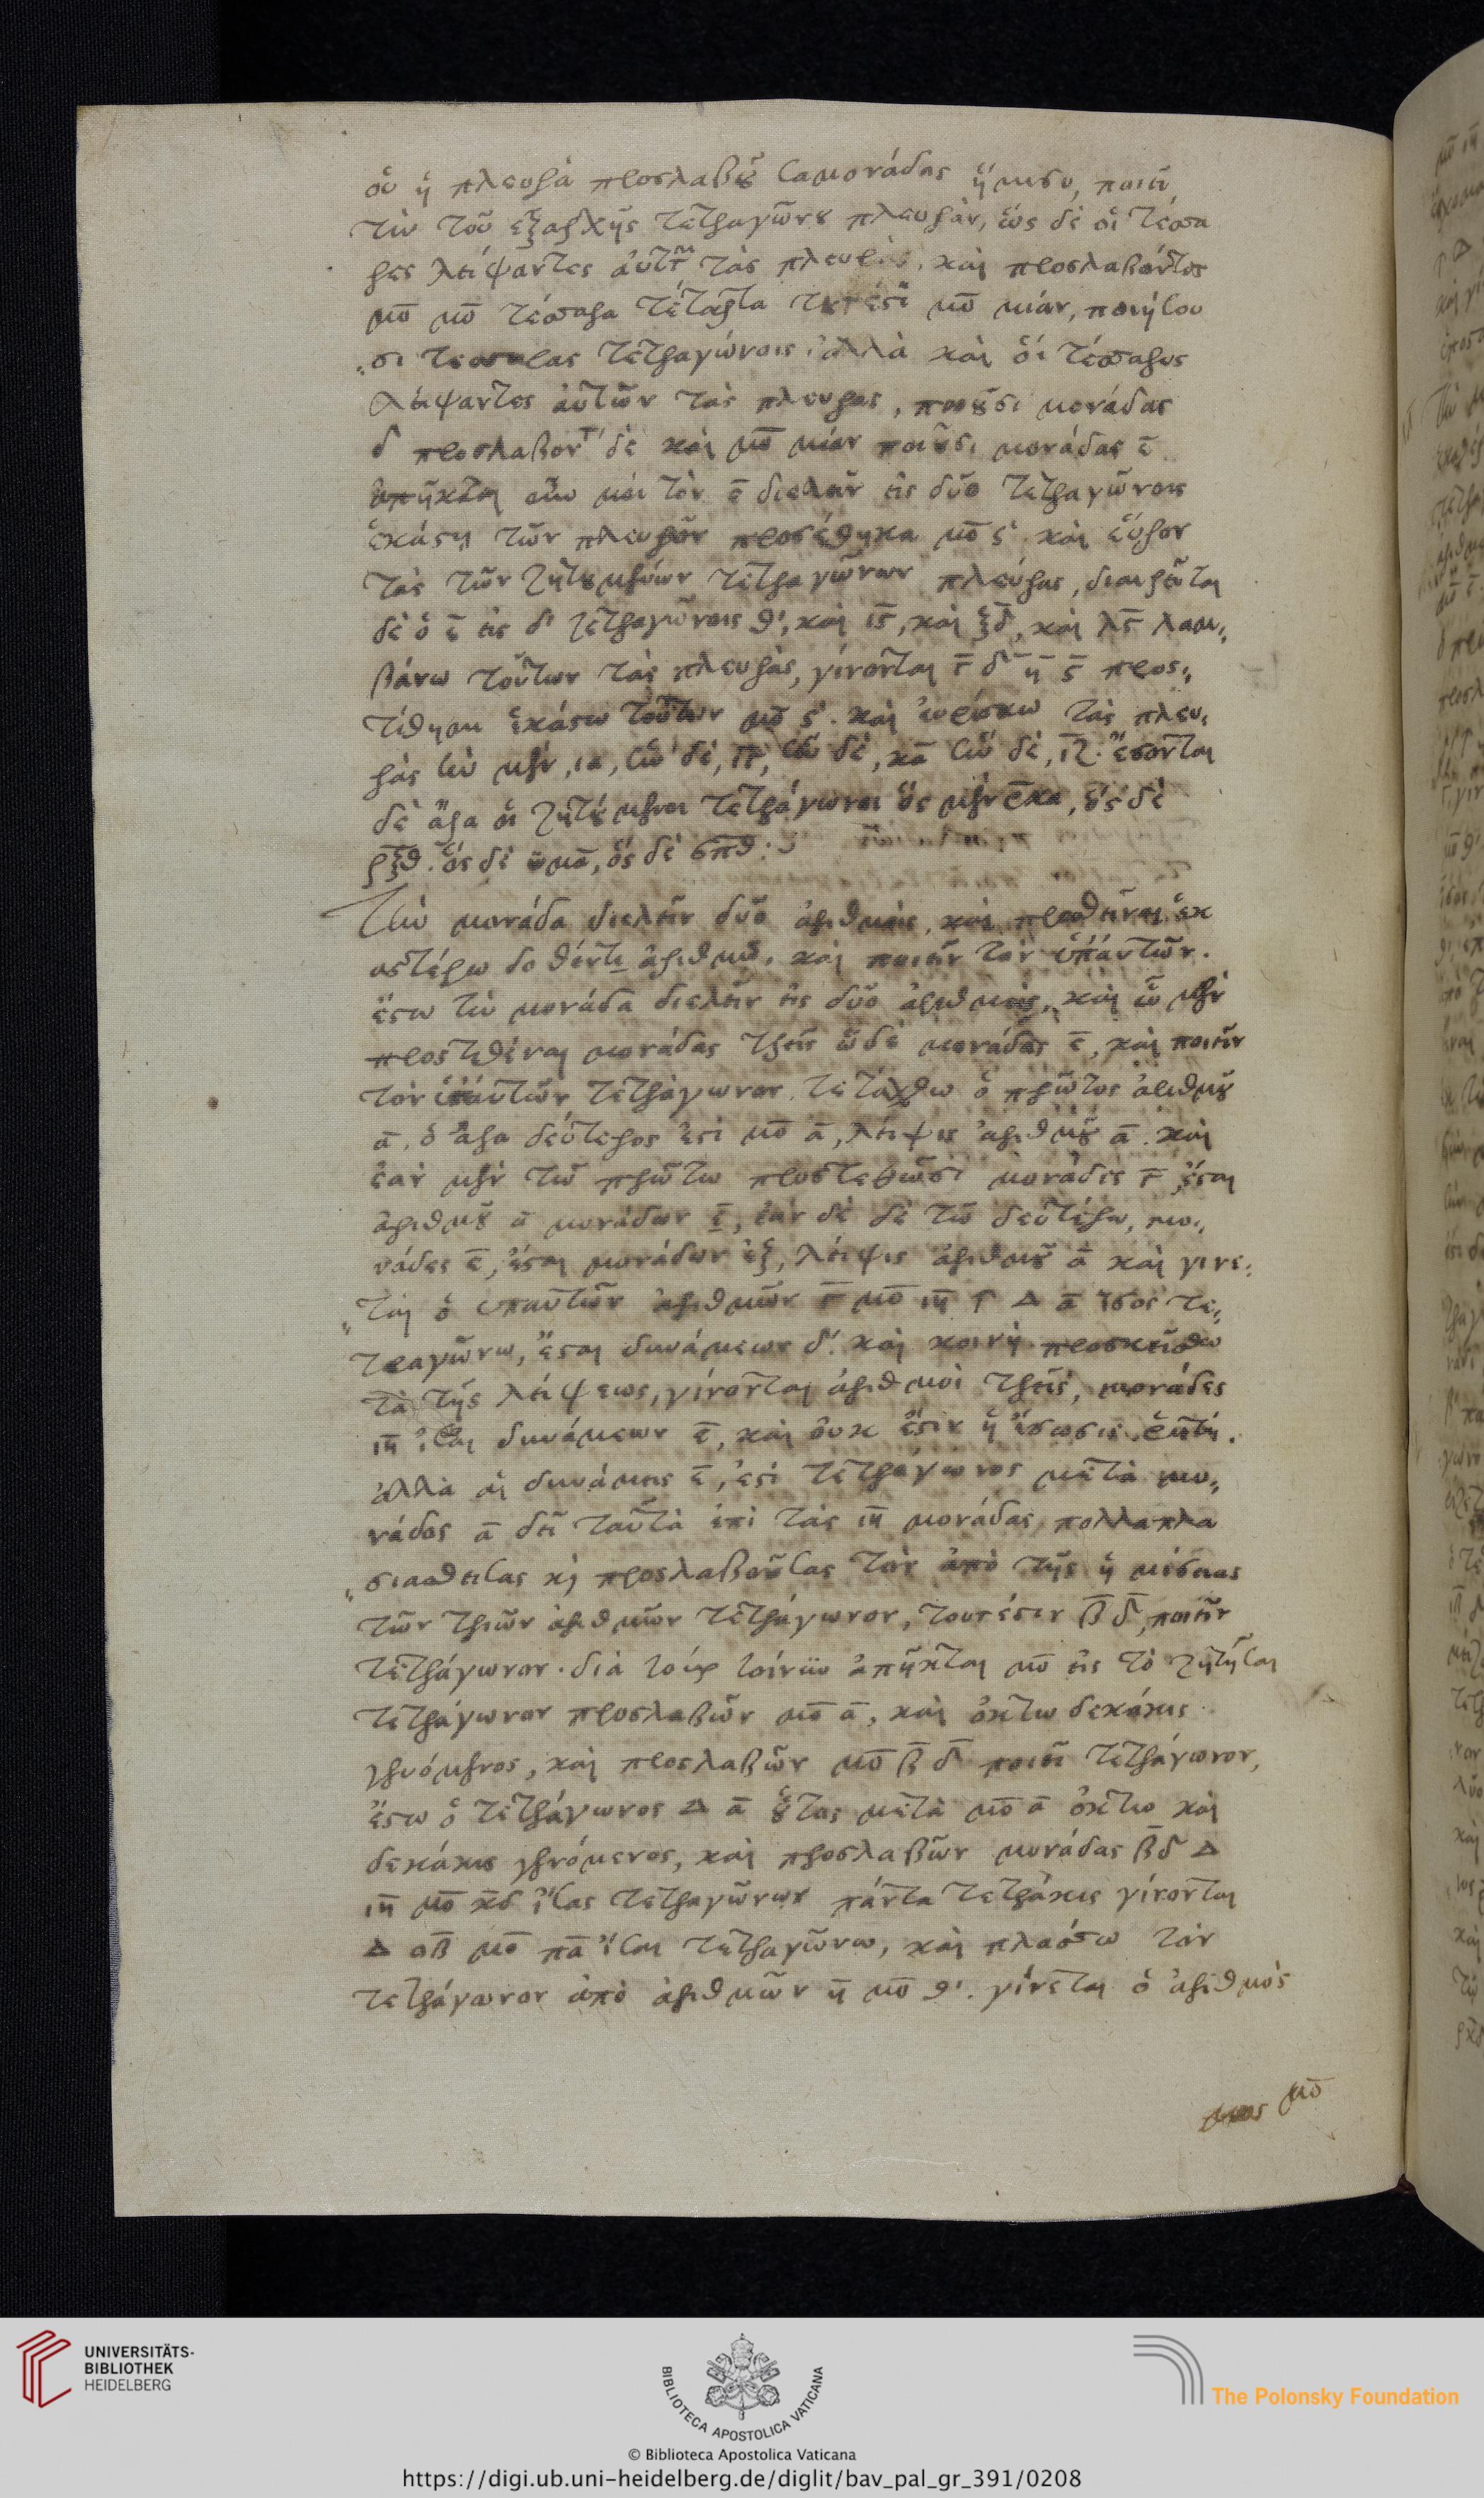 οὗ ἡ πλευρὰ προσλαβοῦσα μονάδας ἥμισυ, ποιεῖ
τὴν τοῦ ἐξαρχῆς τετραγώνου πλευράν, ὡς δὲ οἱ τέσσα
ρες λείψαντες αὐτῶν τὰς πλευρὰς, καὶ προσλαβόντες
μο μο τέσσαρα τέταρτα μο μίαν, ποιήσου
σι τέσσαρας τετραγώνοις. ἀλλὰ καὶ οἱ τέσσαρες
λείψαντες αὐτῶν τὰς πλευρας, ποιοῦσι μονάδας
δ προσλαβοντ δὲ καὶ μο μίαν ποιοῦσι μονάδας ε̄
ἀπῆκται οὖν μοι τὸν ε̄ διελεῖν εἰς δύο τετραγώνοις
ἑκάστη τῶν πλευρῶν προσέθηκα μο ς καὶ εὗρον
τὰς τῶν ζητουμένων τετραγώνων πλεύρας, διαιρεῖται
δὲ ὁ ε̄ εἰς δ' τετραγώνοις θ', καὶ ις̄, καὶ ξδ̄, καὶ λς̄ λαμ„
βάνω τούτων τὰς πλευρὰς, γίνονται γ̄ δ̄ η̄ ς̄ προς„
τίθημι ἑκάστω τούτων μο ς'. καὶ εὑρίσκω τὰς πλευ„
ρὰς τὴν μὲν, ια, τὴν δὲ, ιγ̄, τὴν δὲ, κᾱ τὴν δὲ, ιζ̄. ἔσονται
δὲ ἄρα οἱ ζητούμενοι τετράγωνοι ὃς μὲν ρ̄κα, ὃς δὲ
ρ̄ξθ. ὃς δὲ ῡμᾱ, ὃς δὲ σπ̄θ:
Τὴν μονάδα διελεῖν δύο ἀριθμοὺς, καὶ προσθεῖναι ἑκ
αστέρω δοθέντι ἀριθμὸ, καὶ ποιεῖν τὸν ὑπάντῶν.
ἔστω τὴν μονάδα διελεῖν εἰς δύο ἀριθμοὺς, καὶ ᾧ μὲν
προςτιθέναι μονάδας τρεῖς ᾧ δὲ μονάδας ε̄, καὶ ποιεῖν
τὸν ὑπάυτῶν τετράγωνον. τετάχθω ὁ πρῶτος ἀριθμοῦ
ᾱ, ὁ ἄρα δεύτερος ἐστὶ μο ᾱ, λείψις ἀριθμοῦ ᾱ. καὶ
ἐὰν μὲν τῶ πρώτω προςτεθῶσι μονάδες γ̄, ἔσται
ἀριθμοῦ ᾱ μονάδων γ̄, ἐὰν δὲ δὲ τῶ δευτέρω, μο„
νάδες ε̄, ἔσται μονάδων ἓξ, λείψις ἀριθμοῦ ᾱ καὶ γινε„
ται ὁ ὑπαυτῶν ἀριθμῶν γ̄ μο ιη̄ Δ ᾱ ἴσος τε„
τραγώνω, ἔσται δυνάμεων δ'. καὶ κοινὴ προσκείσθω
τὰ τῆς λείψεως, γίνονται ἀριθμοὶ τρεῖς, μονάδες
ιη̄ ἴσαι δυνάμεων ε̄, καὶ οὐκ ἔστιν ἡ ἴσωσις ῥητή.
ἀλλὰ αἱ δυνάμεις ε̄, ἐστὶ τετράγωνος μετὰ μο„
νάδος ᾱ δεῖ ταῦτὰ ἐπὶ τὰς ιη̄ μονάδας πολλαπλα
σιασθείσας κ προςλαβούσας τὸν ἀπὸ τῆς ἡμισείας
τῶν τριῶν ἀριθμῶν τετράγωνον, τουτέστιν β̄ δ̄, ποιεῖν
τετράγωνον. διὰ τοίνυν ἀπῆκται μο εἰς τὸ ζητῆσαι
τετράγωνον προσλαβὼν μο ᾱ, καὶ ὀκτω δεκάκις
γενόμενος, καὶ προςλαβὼν μο β̄ δ̄ ποιεῖ τετράγωνον,
ἔστω ὁ τετράγωνος Δ ᾱ οὗτος μετὰ μο ᾱ ὀκτω καὶ
δεκάκις γενόμενος, καὶ προσλαβὼν μονάδας β̄δ̄ Δ
ιη̄ μο κδ ἴσας τετραγώνων πάντα τετράκις γίνονται
Δ οβ̄ μο πᾱ ἴσαι τετραγώνω, καὶ πλάσσω τὸν
τετράγωνον ἀπὸ ἀριθμῶν η̄ μο θ'. γίνεται ὁ ἀριθμὸς
μο
UNIVERSITÄTS-
BIBLIOTHEK
HEIDELBERG
BIBLIOTECA APOSTOLICA VATICANA
The Polonsky Foundation
© Biblioteca Apostolica Vaticana
https://digi.ub.uni-heidelberg.de/diglit/bav_pal_gr_391/0208